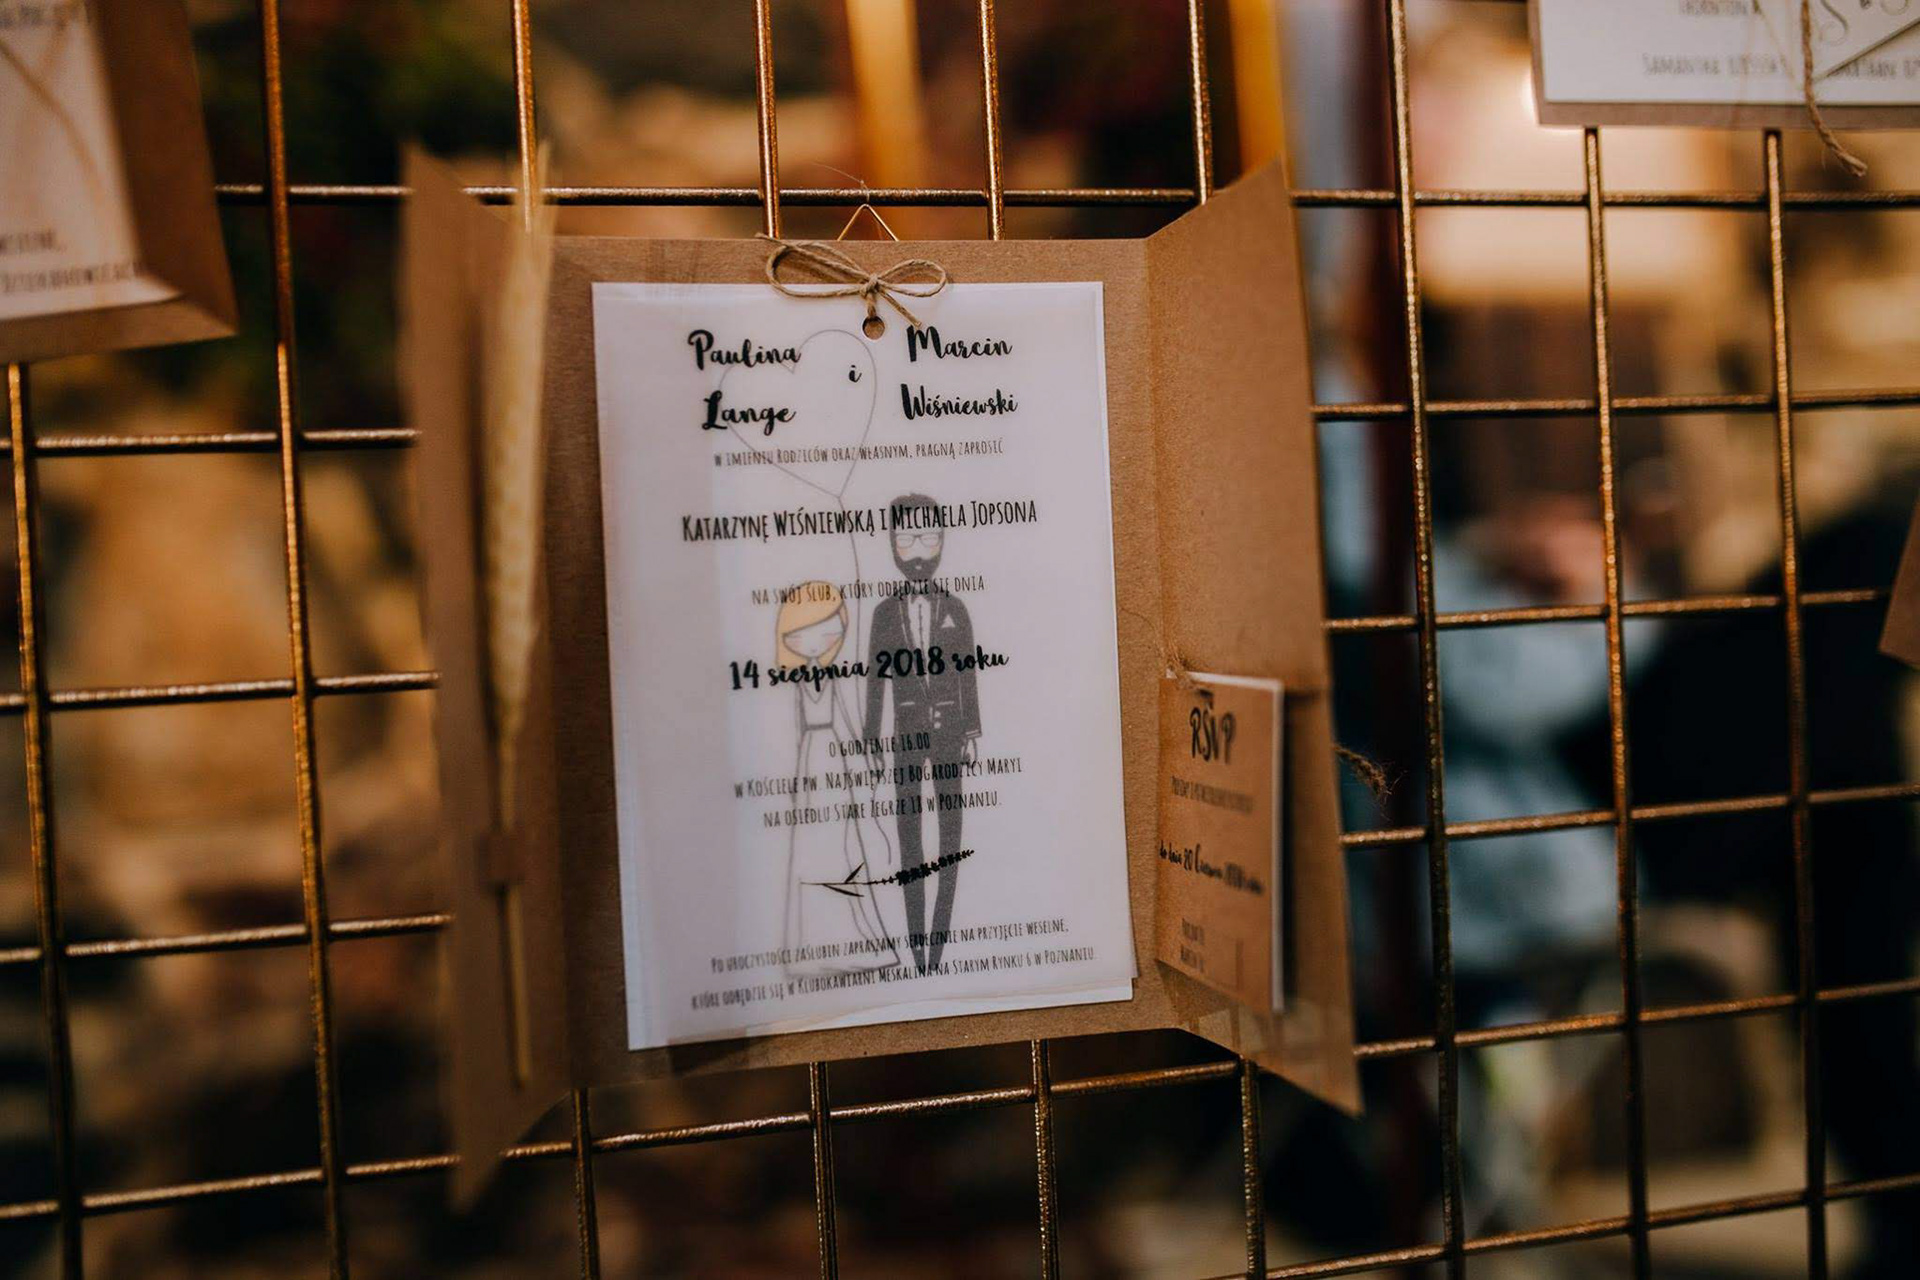 Paulina i Marcin
Lange Wiśniewski
W IMIENIU RODZICÓW ORAZ WŁASNYM, PRAGNĄ ZAPROSIĆ
KATARZYNĘ WIŚNIEWSKĄ I MICHAELA JOPSONA
NA SWÓJ ŚLUB, KTÓRY ODBĘDZIE SIĘ DNIA
14 sierpnia 2018 roku
O GODZINIE 16.00
W KOŚCIELE PW. NAJŚWIĘTSZEJ BOGARODZICY MARYI
NA OSIEDLU STARE ŻEGRZE 18 W POZNANIU.
PO UROCZYSTOŚCI ZAŚLUBIN ZAPRASZAMY SERDECZNIE NA PRZYJĘCIE WESELNE,
KTÓRE ODBĘDZIE SIĘ W KLUBOKAWIARNI MESKALINA NA STARYM RYNKU 6 W POZNANIU.
RSVP
do dnia 20 Czerwca 2018 roku
SAMANTHA